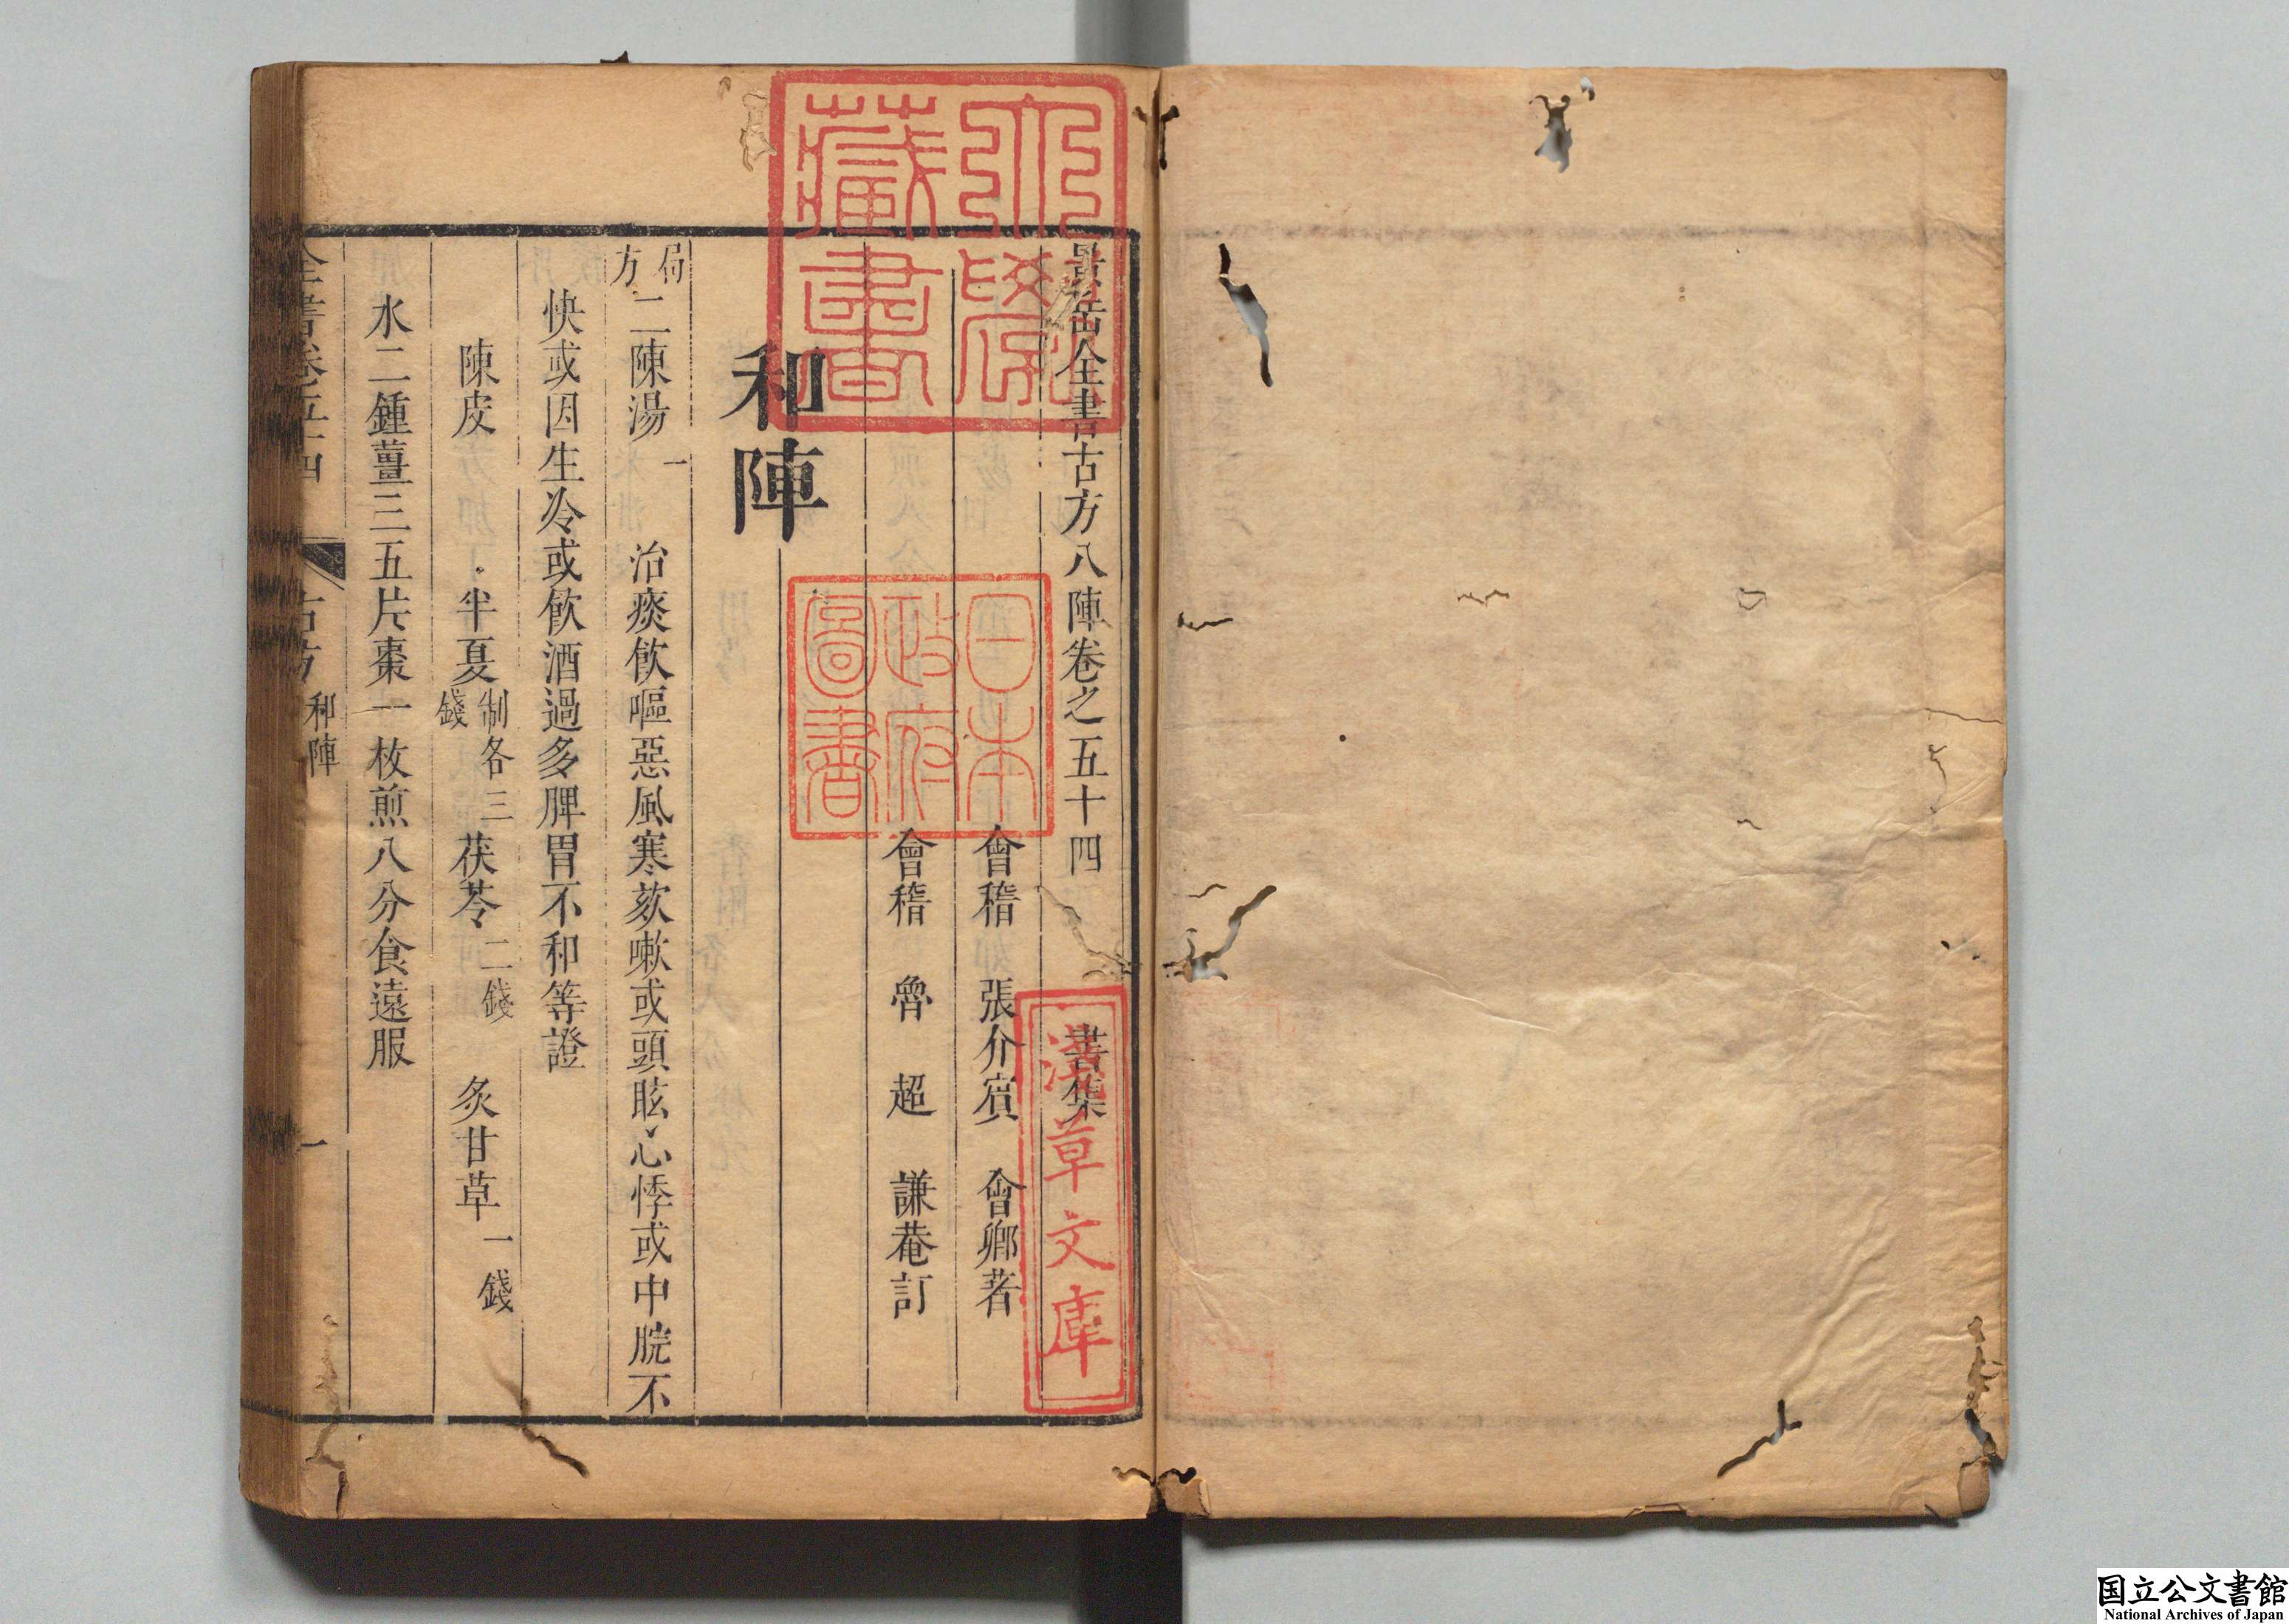 景岳全書古方八陣卷之五十四 書集
會稽 張介賓 會卿著
會稽 魯 超 謙菴訂
和陣
局方二陳湯一 治痰飲嘔惡風寒欬嗽或頭眩心悸或中脘不
快或因生冷或飲酒過多脾胃不和等證
陳皮 半夏制各三錢 茯苓二錢 炙甘草一錢
水二鍾薑三五片棗一枚煎八分食遠服
全書卷五十四 古方 和陣 一
大學
藏書
日本
政府
圖書
淺草文庫
国立公文書館
National Archives of Japan